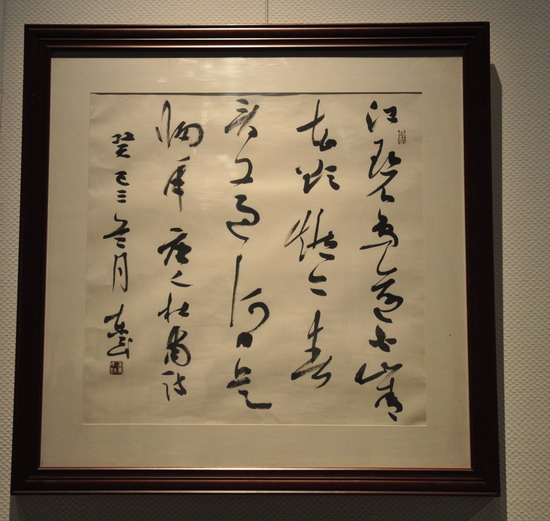 江碧鸟逾白山青
花欲燃今春
看又过何日是
归年唐人杜甫诗
癸巳三冬月